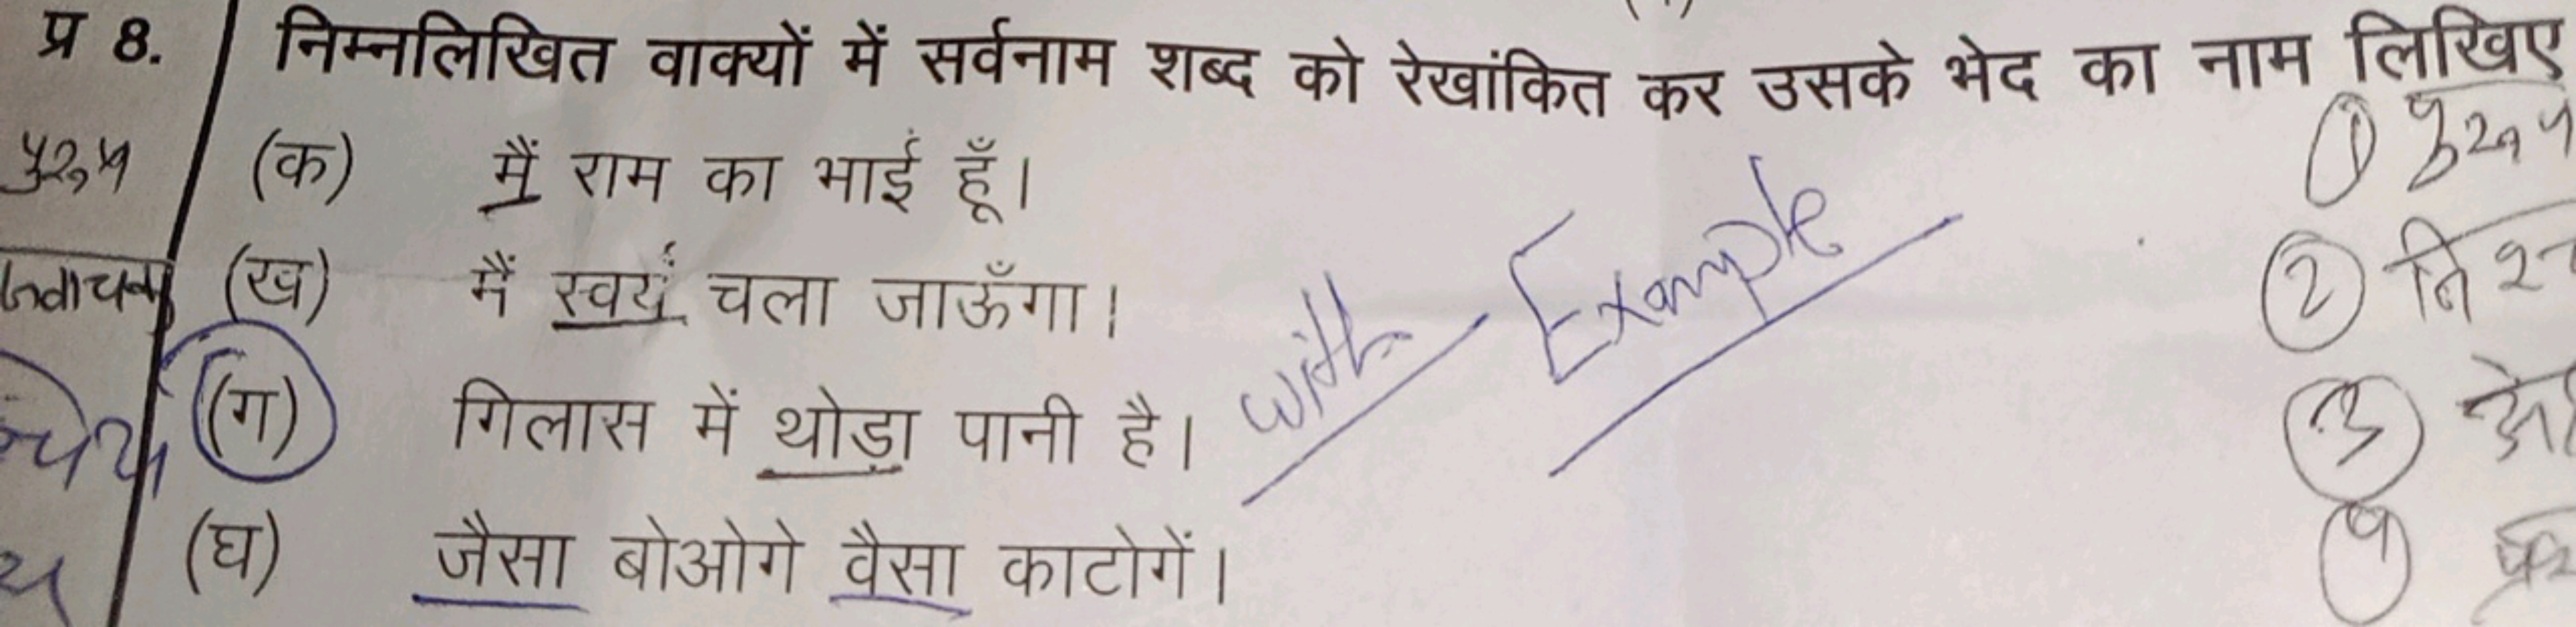 प्र 8. निम्नलिखित वाक्यों में सर्वनाम शब्द को रेखांकित कर उसके भेद का नाम लिखिए
(क) मैं राम का भाई हूँ।
(ख) मैं स्वयं चला जाऊँगा।
(ग) गिलास में थोड़ा पानी है।
(घ) जैसा बोओगे वैसा काटोगें।
with Example
①
②
③